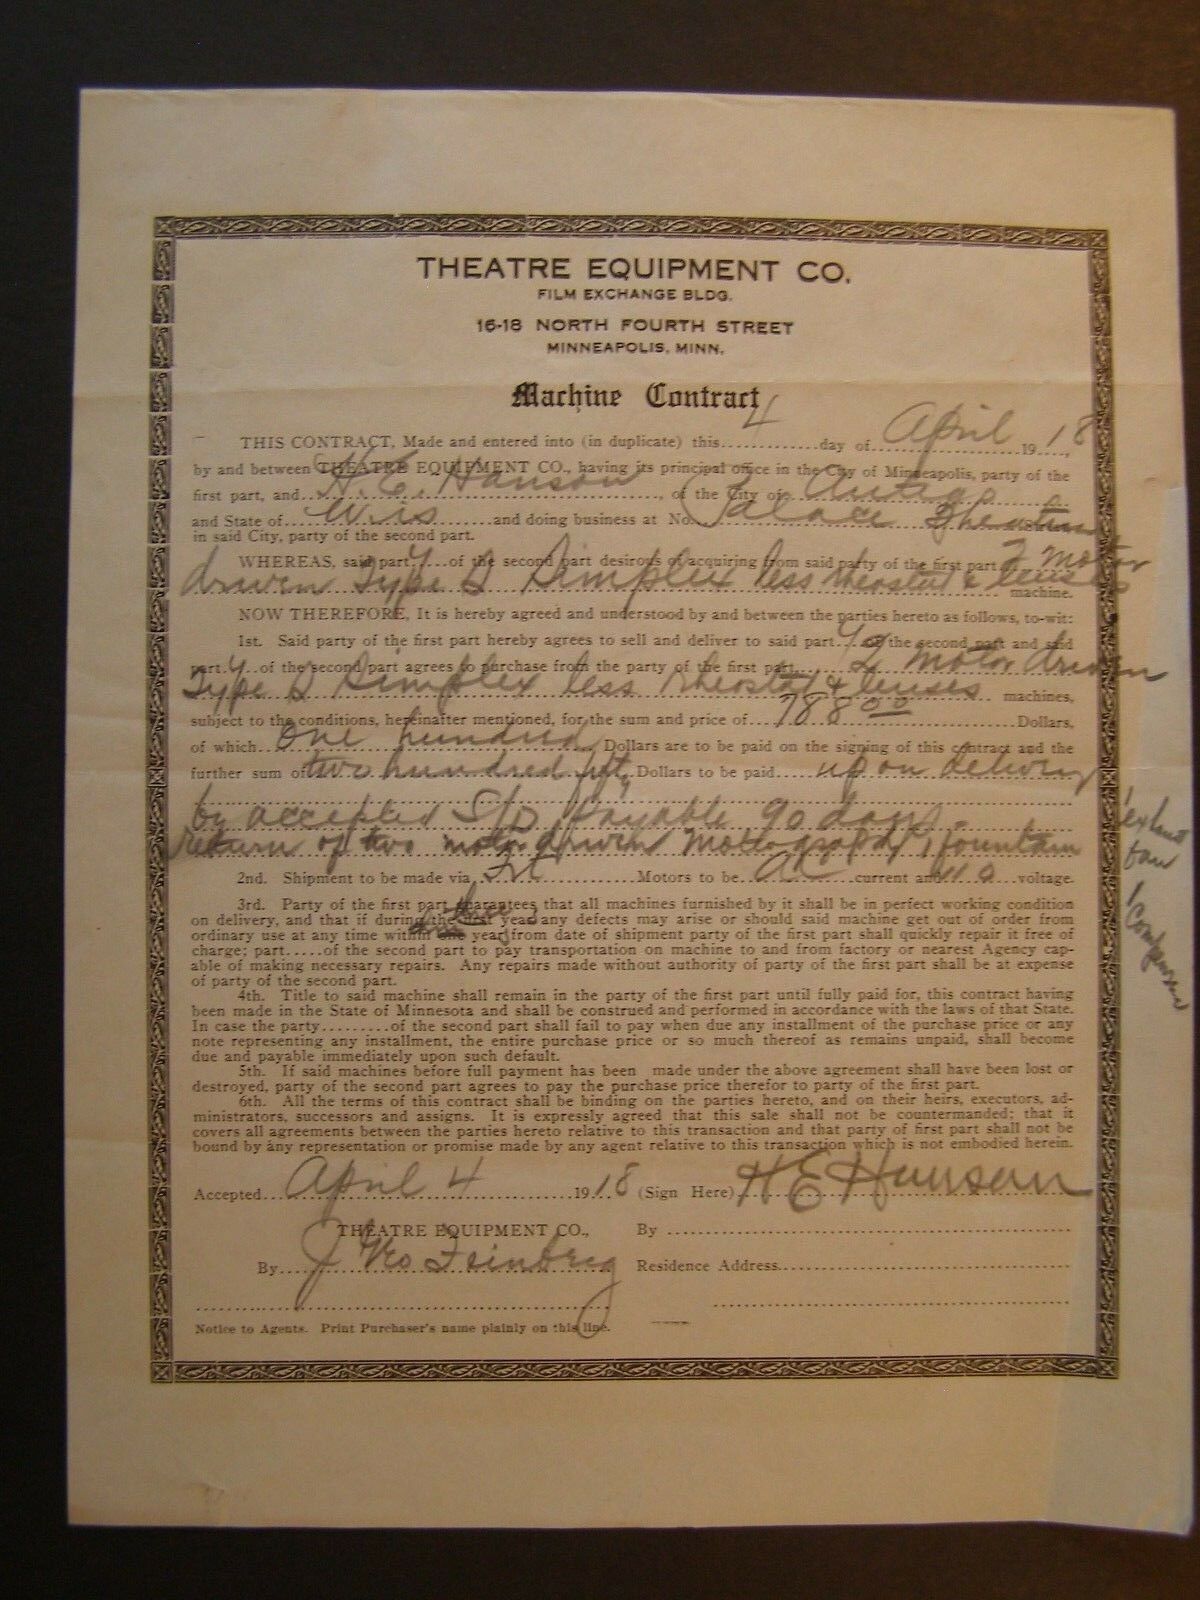 THEATRE EQUIPMENT CO.
FILM EXCHANGE BLDG.
16-18 NORTH FOURTH STREET
MINNEAPOLIS, MINN.
Machine Contract
THIS CONTRACT, Made and entered into (in duplicate) this 4 day of April 1918,
by and between THEATRE EQUIPMENT CO., having its principal office in the City of Minneapolis, party of the
first part, and H. E. Hanson, of the City of Antigo
and State of Wis and doing business at No. Palace Theatre
in said City, party of the second part.
WHEREAS, said party of the second part desirous of acquiring from said party of the first part 2 motor
driven Type S Simplex less rheostat & lenses machine.
NOW THEREFORE, It is hereby agreed and understood by and between the parties hereto as follows, to-wit:
1st. Said party of the first part hereby agrees to sell and deliver to said party of the second part and said
party of the second part agrees to purchase from the party of the first part 2 motor driven
Type S Simplex less rheostat & lenses machines,
subject to the conditions, hereinafter mentioned, for the sum and price of 788 00 Dollars,
of which One hundred Dollars are to be paid on the signing of this contract and the
further sum of two hundred fifty Dollars to be paid upon delivery
by accepted S/D payable 90 days.
Return of two motor driven Motiographs, 1 fountain
1 exhaust
fan
1
2nd. Shipment to be made via Frt Motors to be AC current and 110 voltage.
3rd. Party of the first part guarantees that all machines furnished by it shall be in perfect working condition
on delivery, and that if during the first year any defects may arise or should said machine get out of order from
ordinary use at any time within one year from date of shipment party of the first part shall quickly repair it free of
charge; part.....of the second part to pay transportation on machine to and from factory or nearest Agency cap-
able of making necessary repairs. Any repairs made without authority of party of the first part shall be at expense
of party of the second part.
4th. Title to said machine shall remain in the party of the first part until fully paid for, this contract having
been made in the State of Minnesota and shall be construed and performed in accordance with the laws of that State.
In case the party.........of the second part shall fail to pay when due any installment of the purchase price or any
note representing any installment, the entire purchase price or so much thereof as remains unpaid, shall become
due and payable immediately upon such default.
5th. If said machines before full payment has been made under the above agreement shall have been lost or
destroyed, party of the second part agrees to pay the purchase price therefor to party of the first part.
6th. All the terms of this contract shall be binding on the parties hereto, and on their heirs, executors, ad-
ministrators, successors and assigns. It is expressly agreed that this sale shall not be countermanded; that it
covers all agreements between the parties hereto relative to this transaction and that party of first part shall not be
bound by any representation or promise made by any agent relative to this transaction which is not embodied herein.
Accepted April 4 1918 (Sign Here) H E Hanson
THEATRE EQUIPMENT CO., By
By J Geo Feinberg Residence Address
Notice to Agents. Print Purchaser's name plainly on this line.